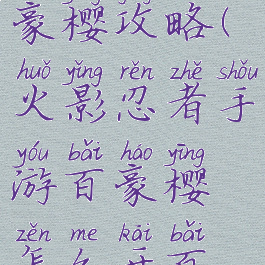 豪樱攻略(
huǒ yǐng rěn zhě shǒu
火影忍者手
yóu bǎi háo yīng
游百豪樱
zěn me kāi bǎi